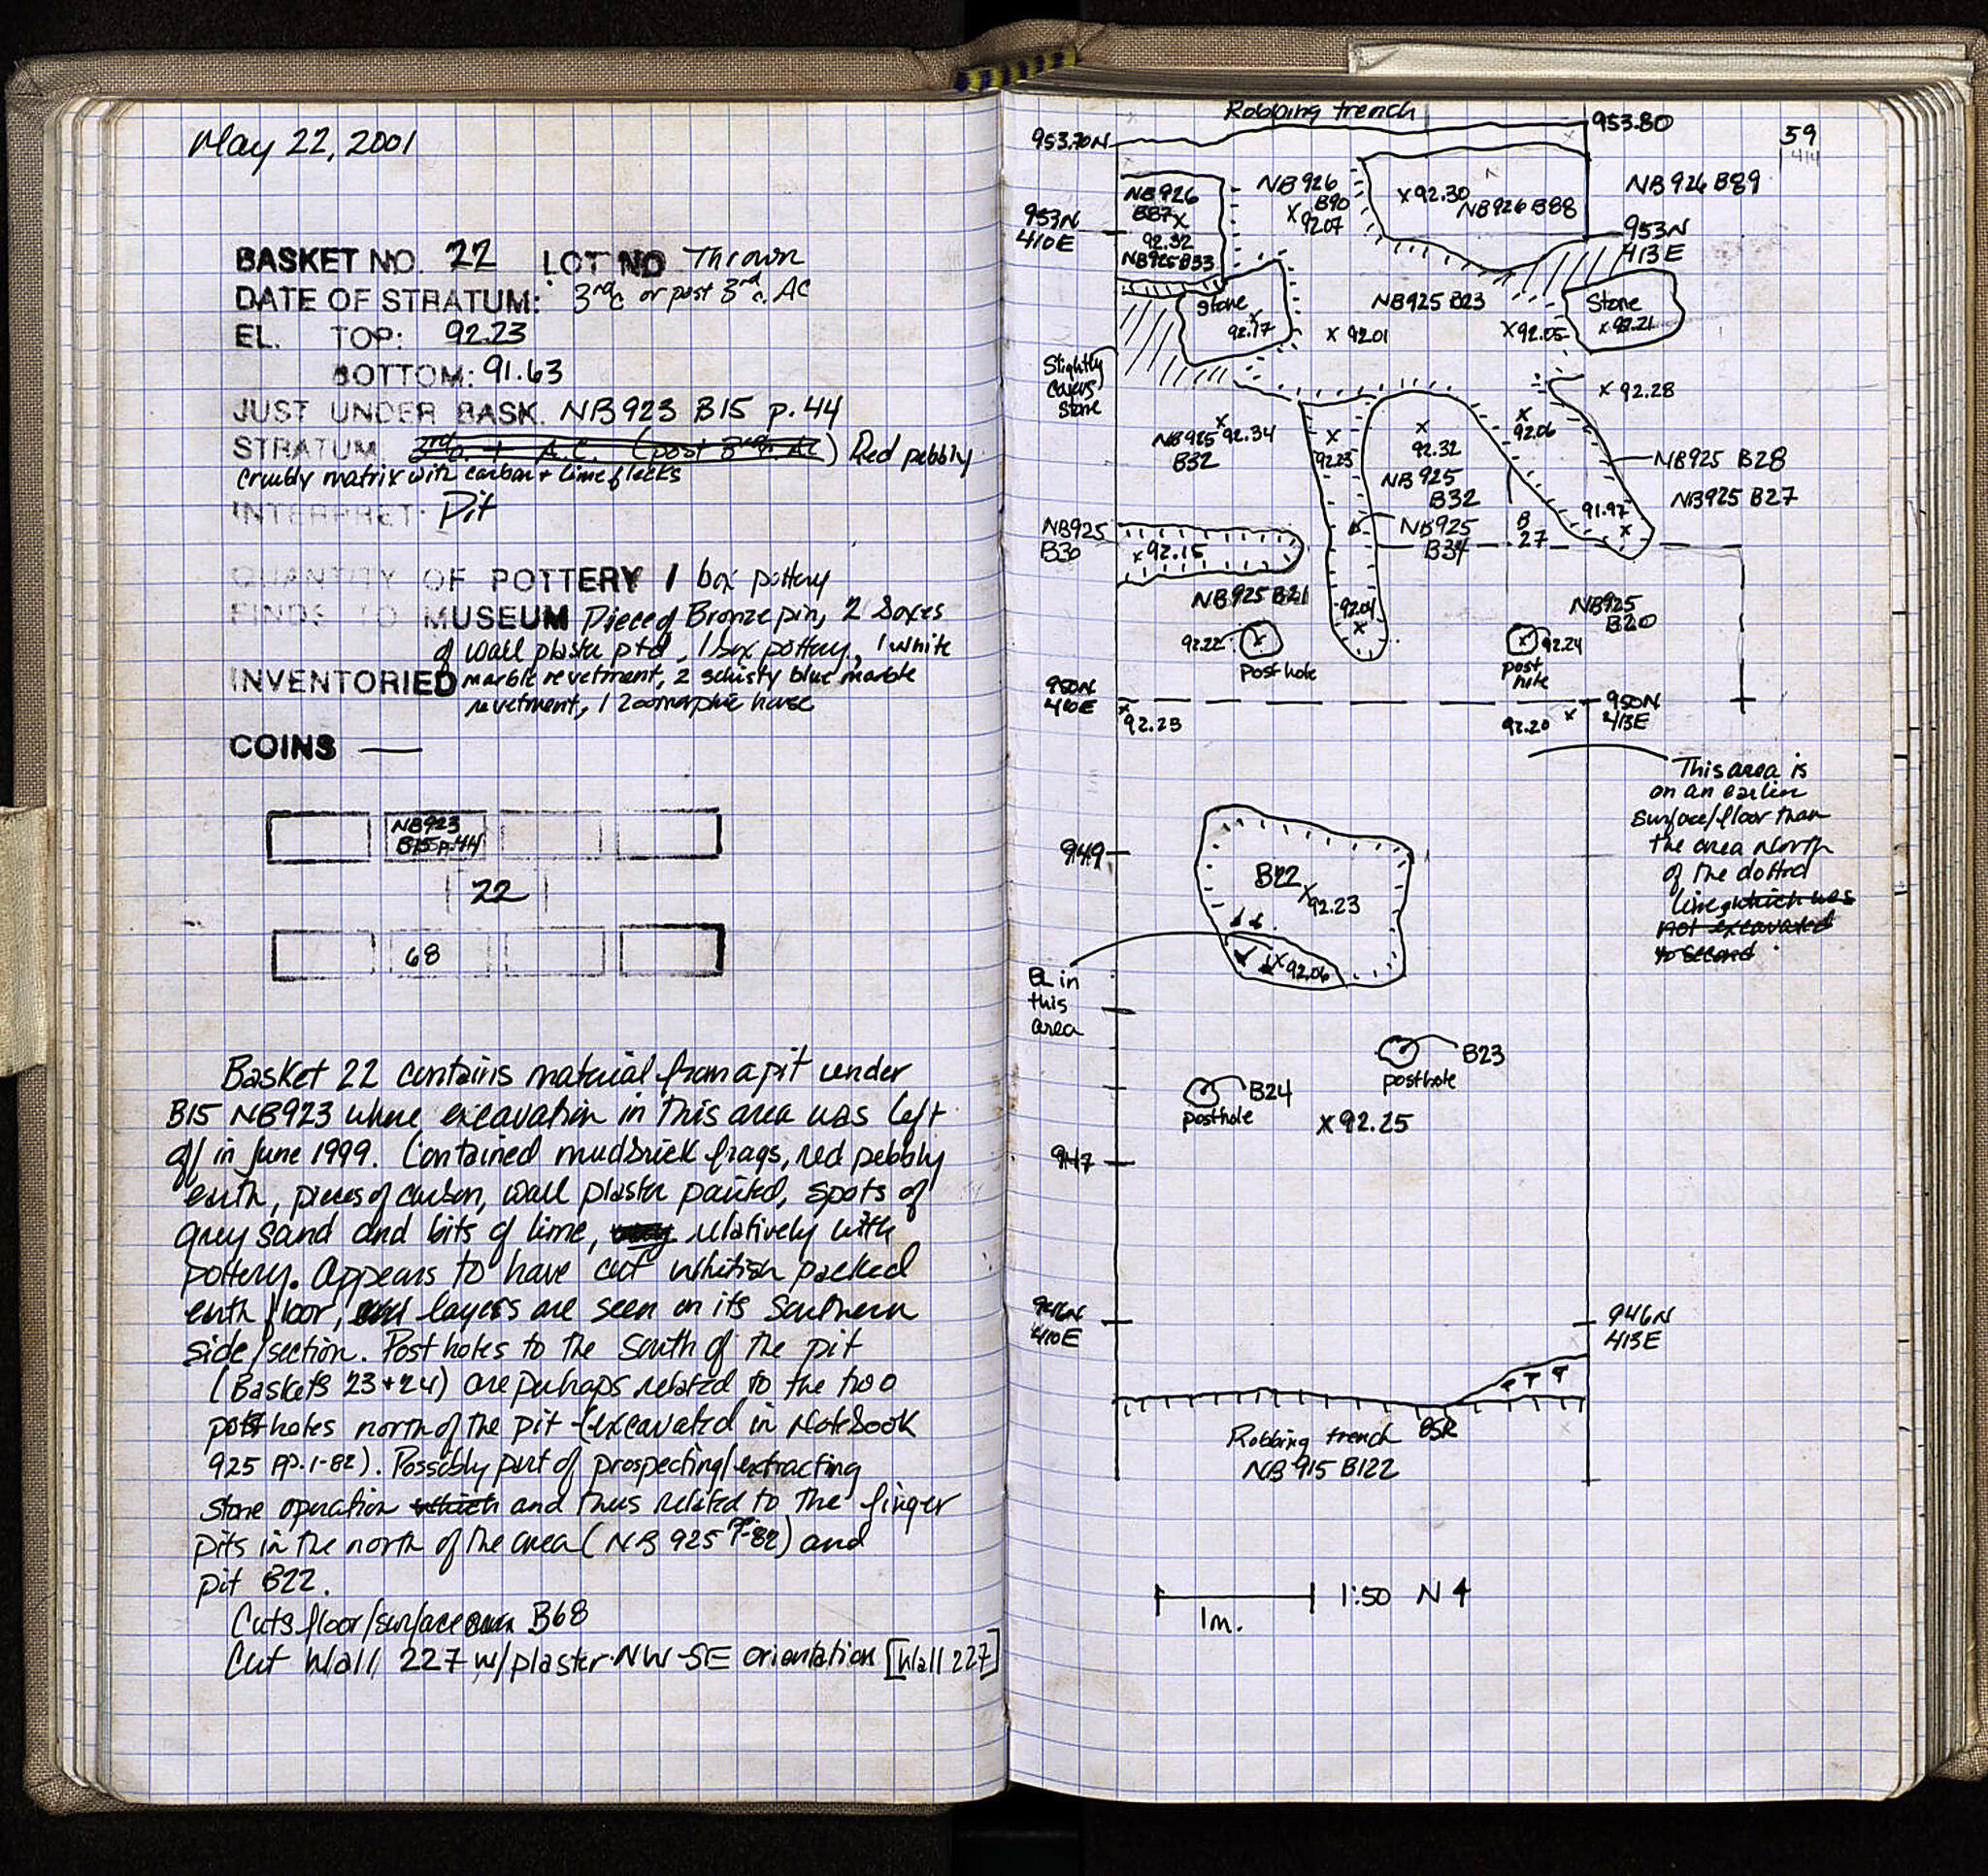 May 22, 2001
BASKET NO. 22 LOT NO Thrown
DATE OF STRATUM: 3rd c or post 3rd c. AC
EL. TOP: 92.23
BOTTOM: 91.63
JUST UNDER BASK. NB923 B15 p.44
STRATUM A.C. (post 3rd c. AC) Red pebbly
crumbly matrix with carbon + lime flecks
INTERPRET: Pit
QUANTITY OF POTTERY 1 box pottery
FINDS TO MUSEUM Piece of Bronze pin, 2 boxes
of wall plaster ptd, 1 box pottery, 1 white
INVENTORIED marble revetment, 2 schisty blue marble
revetment, 1 zoomorphic horse
COINS —
NB923
B15 p.44
22
68
Basket 22 contains material from a pit under
B15 NB923 where excavation in this area was left
off in June 1999. Contained mudbrick frags, red pebbly
earth, pieces of carbon, wall plaster painted, spots of
grey sand and bits of lime, relatively with
pottery. Appears to have cut whitish packed
earth floor, layers are seen on its Southern
side/section. Post holes to the south of the pit
(Baskets 23+24) are perhaps related to the two
post holes north of the pit (excavated in Notebook
925 pp. 1-82). Possibly part of prospecting/extracting
stone operation which and thus related to the finger
pits in the north of the area (NB 925 pp. 1-82) and
pit B22.
Cuts floor/surface B68
Cut Wall 227 w/plaster NW-SE orientation [Wall 227]
Robbing trench
953.70N
953.80
59
NB926
B87 X
92.32
NB925 B33
NB926
B90
X
92.07
X92.30
NB926 B88
NB926 B89
953N
410E
953N
413E
Stone
X
92.17
NB925 B23
X 92.01
X92.05
Stone
X 92.21
Slightly
covers
stone
X 92.28
X
NB925 92.34
B32
X
92.25
X
92.32
NB 925
B32
X
92.06
NB925 B28
NB925 B27
91.97
X
NB925
B30
X92.15
NB925
B34
B
27
NB925 B21
92.04
X
NB925
B20
92.22 X
Post hole
X 92.24
post
hole
950N
410E
X
92.23
92.20 X
950N
413E
This area is
on an earlier
surface/floor than
the area north
of the dotted
line, which was
not excavated
to second.
949
B22
X
92.23
X92.06
EL in
this
area
B23
posthole
B24
posthole
X 92.25
947
946N
410E
946N
413E
Robbing trench BSK
NB 915 B122
1m.
1:50 N